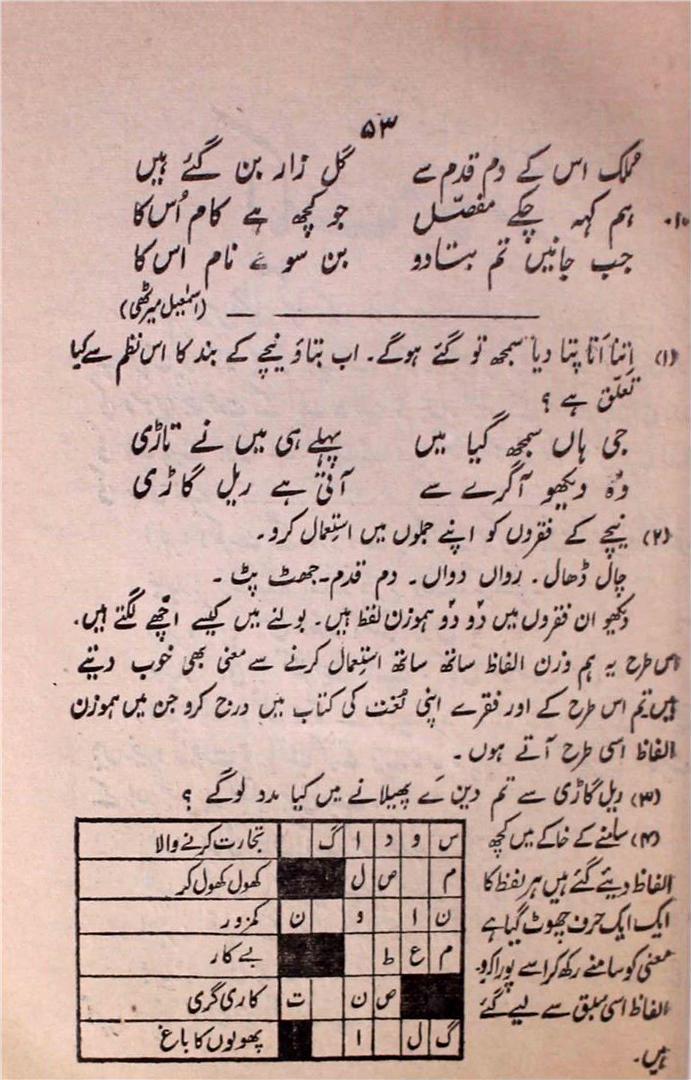 ۵۳
ملک اس کے دم قدم سے گل زار بن گئے ہیں
۱۰۔ ہم کہہ چکے مفصّل جو کچھ ہے کام اُس کا
جب جانیں تم بتا دو بن سوچے نام اس کا
(اسمٰعیل میرٹھی)
(۱) اِتنا اَتا پتا دیا سمجھ تو گئے ہوگے۔ اب بتاؤ نیچے کے بند کا اس نظم سے کیا
تعلّق ہے ؟
جی ہاں سمجھ گیا میں پہلے ہی میں نے تاڑی
وُہ دیکھو آگرے سے آتی ہے ریل گاڑی
(۲) نیچے کے فقروں کو اپنے جملوں میں استعمال کرو۔
چال ڈھال۔ رواں دواں۔ دم قدم۔ جھٹ پٹ ۔
دیکھو ان فقروں میں دو دو ہموزن لفظ ہیں۔ بولنے میں کیسے اچھے لگتے ہیں۔
اس طرح یہ ہم وزن الفاظ ساتھ ساتھ استعمال کرنے سے معنی بھی خوب دیتے
ہیں تم اس طرح کے اور فقرے اپنی لُغت کی کتاب میں درج کرو جن میں ہموزن
الفاظ اسی طرح آتے ہوں ۔
(۳) ریل گاڑی سے تم دین کے پھیلانے میں کیا مدد لوگے ؟
(۴) سامنے کے خاکے میں کچھ
الفاظ دیئے گئے ہیں ہر لفظ کا
ایک ایک حرف چھوٹ گیا ہے
معنی کو سامنے رکھ کر اسے پورا کرو۔
الفاظ اسی سبق سے لیے گئے
ہیں۔
س و د ا گ تجارت کرنے والا
م ص ل کھول کھول کر
ن ا و ن کمزور
م ع ط بے کار
ص ن ت کاری گری
گ ل ا پھولوں کا باغ